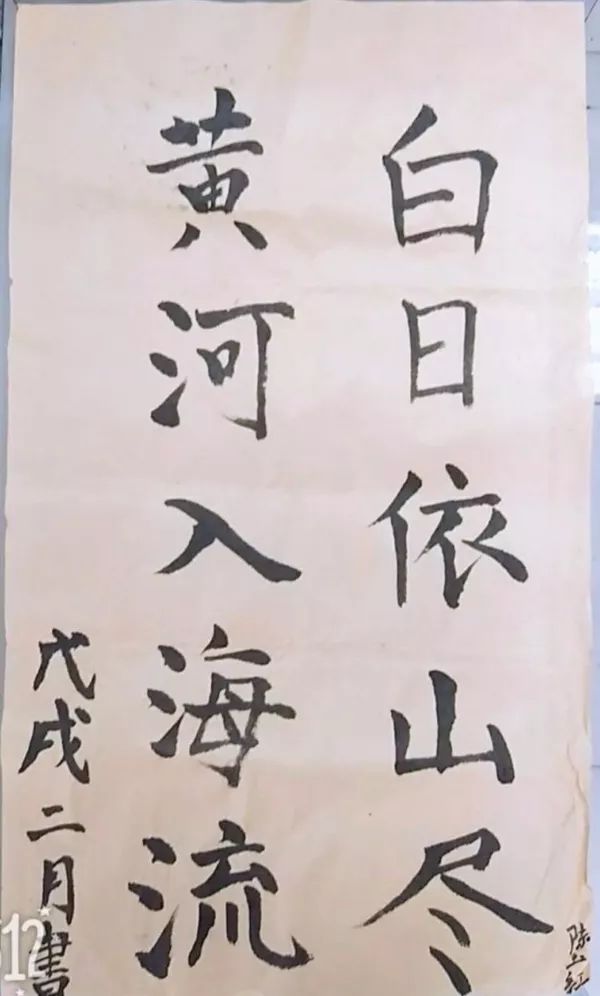 白日依山尽
黄河入海流
戊戌二月書
512